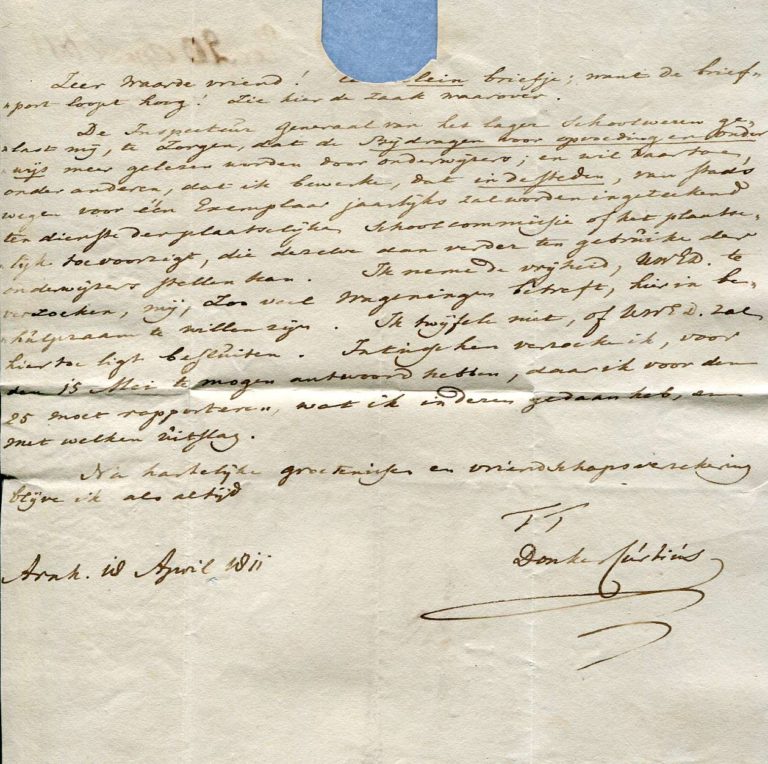 Zeer Waarde vriend! klein briefje; want de brief-
"port loopt hoog! Zie hier de zaak waarover.
De Inspecteur Generaal van het lager Schoolwezen ge-
"last mij, te zorgen, dat de Bijdragen voor opvoeding en onder
"wijs meer gelezen worden door onderwijzers; en wil daartoe,
onder anderen, dat ik bewerke, dat in de steden, van stads
wegen voor één Exemplaar jaarlijks zal worden ingeteekend
ten dienste der plaatselijke Schoolcommissie of het plaatse-
"lijk toevoorzigt, die dezelve dan verder ten gebruike der
onderwijzers stellen kan. Ik neme de vrijheid, UWEd. te
verzoeken, mij, zoo veel Wageningen betreft, hier in be-
"hulpzaam te willen zijn. Ik twijfele niet, of UWEd. zal
hiertoe ligt besluiten. Intusschen verzoeke ik, voor
den 15 Mei te mogen antwoord hebben, daar ik voor den
25 moet rapporteren, wat ik in dezen gedaan heb, en
met welken uitslag.
Na hartelijke groetenisse en vriendschapsverzekering
blijve ik als altijd
TT
Donker Curtius
Arnh. 18 April 1811